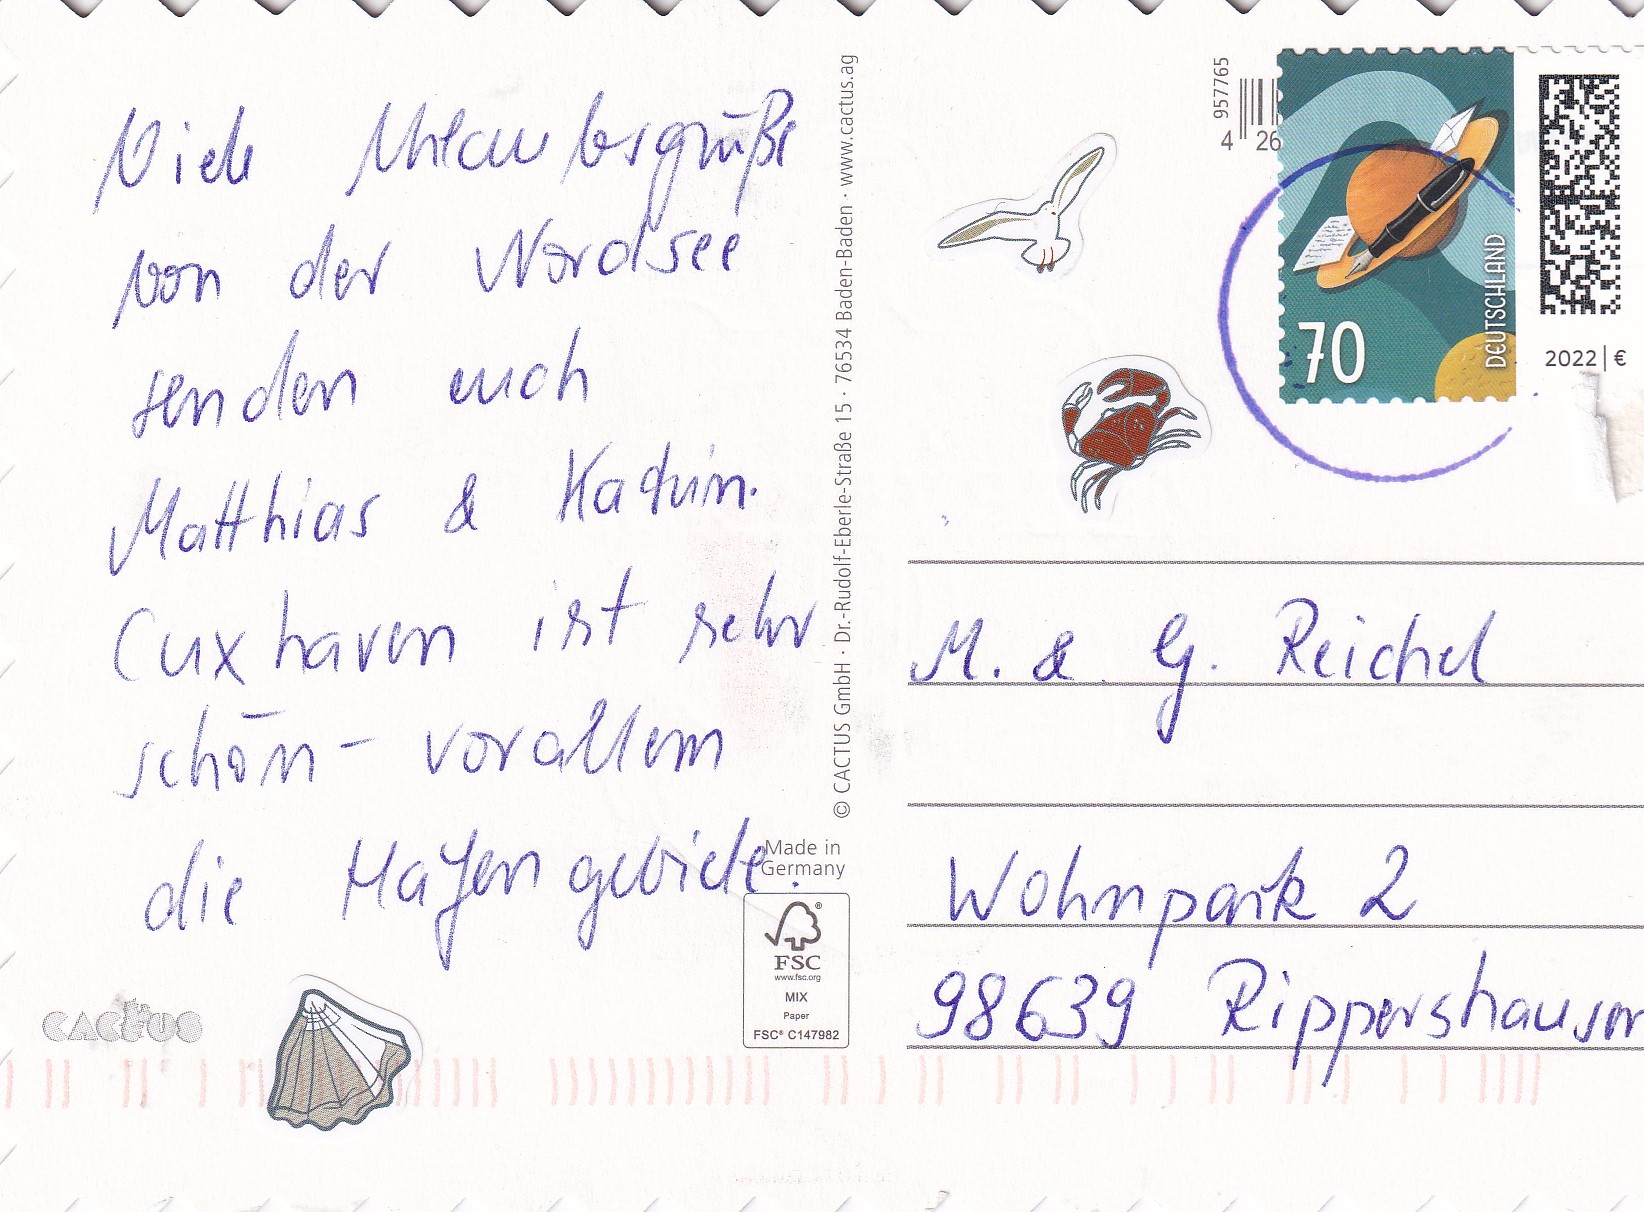 Viele Urlaubsgrüße
von der Nordsee
senden euch
Matthias & Katrin.
Cuxhaven ist sehr
schön - vorallem
die Hafengebiete.
CACTUS
© CACTUS GmbH · Dr.-Rudolf-Eberle-Straße 15 · 76534 Baden-Baden · www.cactus.ag
Made in
Germany
FSC®
www.fsc.org
MIX
Paper
FSC® C147982
957765
4 26
70
DEUTSCHLAND
2022 | €
M. & G. Reichel
Wohnpark 2
98639 Rippershausen